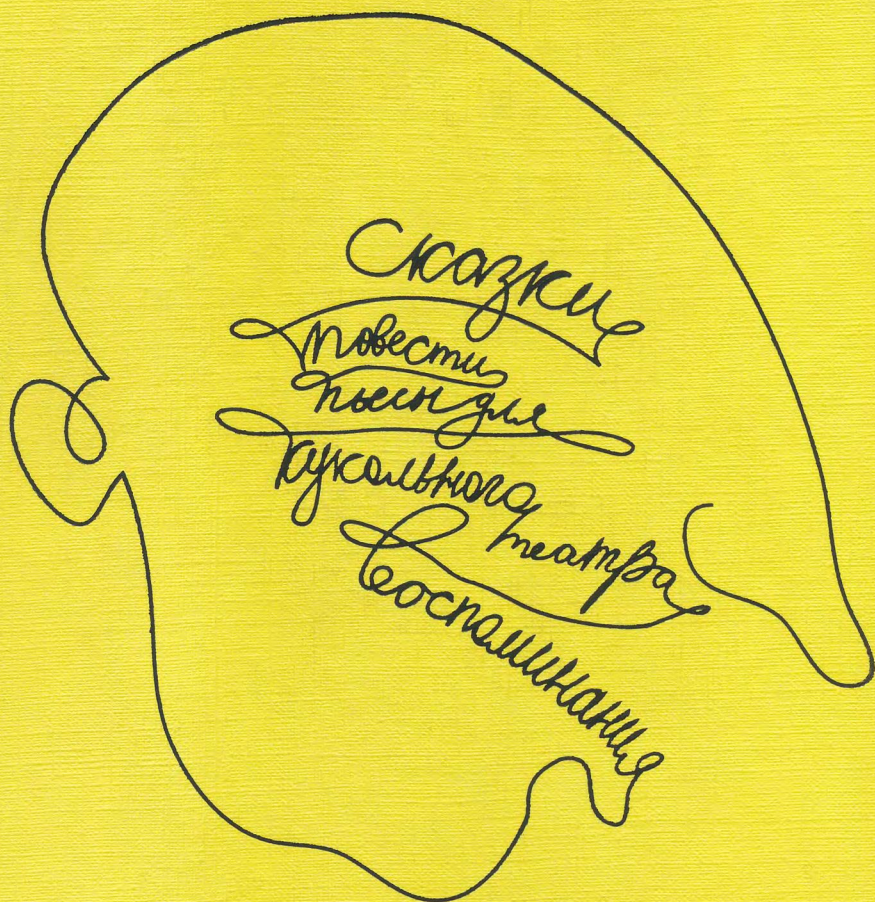 Сказки
повести
пьесы для
кукольного
театра
воспоминания